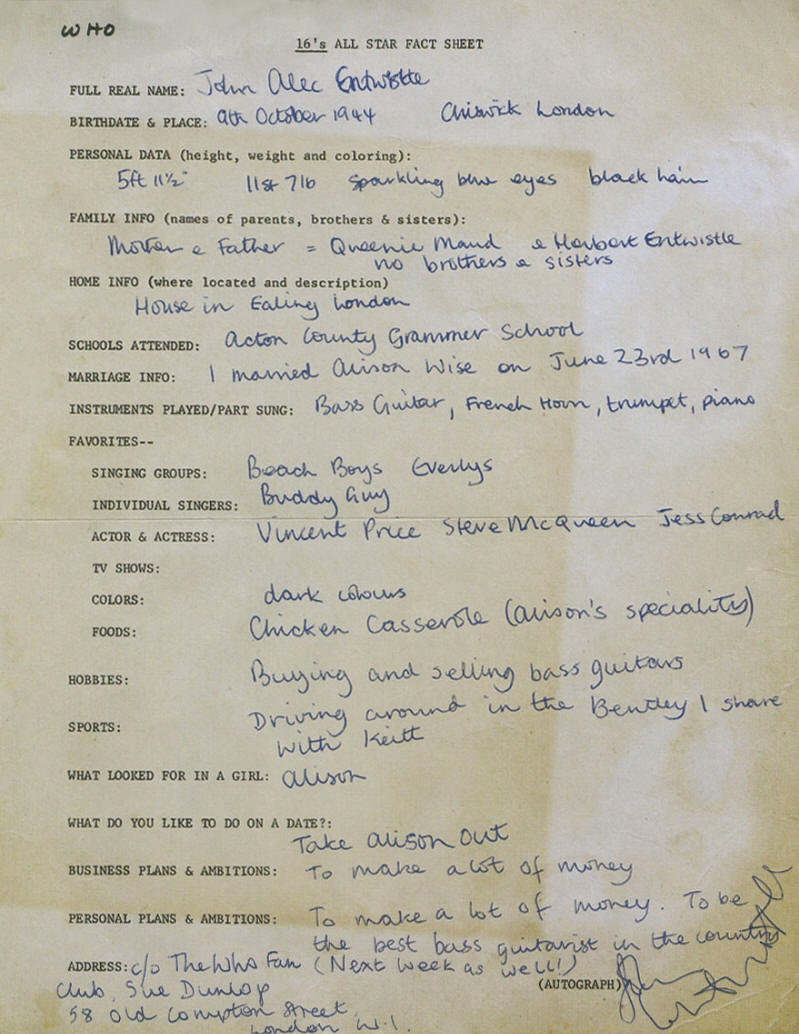 WHO
16's ALL STAR FACT SHEET
FULL REAL NAME: John Alec Entwistle
BIRTHDATE & PLACE: 9th October 1944 Chiswick London
PERSONAL DATA (height, weight and coloring):
5ft 11½" 11st 7lb sparkling blue eyes black hair
FAMILY INFO (names of parents, brothers & sisters):
Mother & Father = Queenie Maud & Herbert Entwistle
no brothers & sisters
HOME INFO (where located and description)
House in Ealing London
SCHOOLS ATTENDED: Acton County Grammer School
MARRIAGE INFO: I married Alison Wise on June 23rd 1967
INSTRUMENTS PLAYED/PART SUNG: Bass Guitar, French Horn, trumpet, piano
FAVORITES--
SINGING GROUPS: Beach Boys Everlys
INDIVIDUAL SINGERS: Buddy Guy
ACTOR & ACTRESS: Vincent Price Steve McQueen Jess Conrad
TV SHOWS:
COLORS: dark colours
FOODS: Chicken Casserole (Alison's speciality)
HOBBIES: Buying and selling bass guitars
SPORTS: Driving around in the Bentley I share
with Keith
WHAT LOOKED FOR IN A GIRL: Alison
WHAT DO YOU LIKE TO DO ON A DATE?:
Take Alison out
BUSINESS PLANS & AMBITIONS: To make a lot of money
PERSONAL PLANS & AMBITIONS: To make a lot of money. To be
the best bass guitarist in the country
ADDRESS: c/o The Who Fan (Next week as well!)
Club, Sue Dunlop (AUTOGRAPH)
58 Old Compton Street,
London W.1.